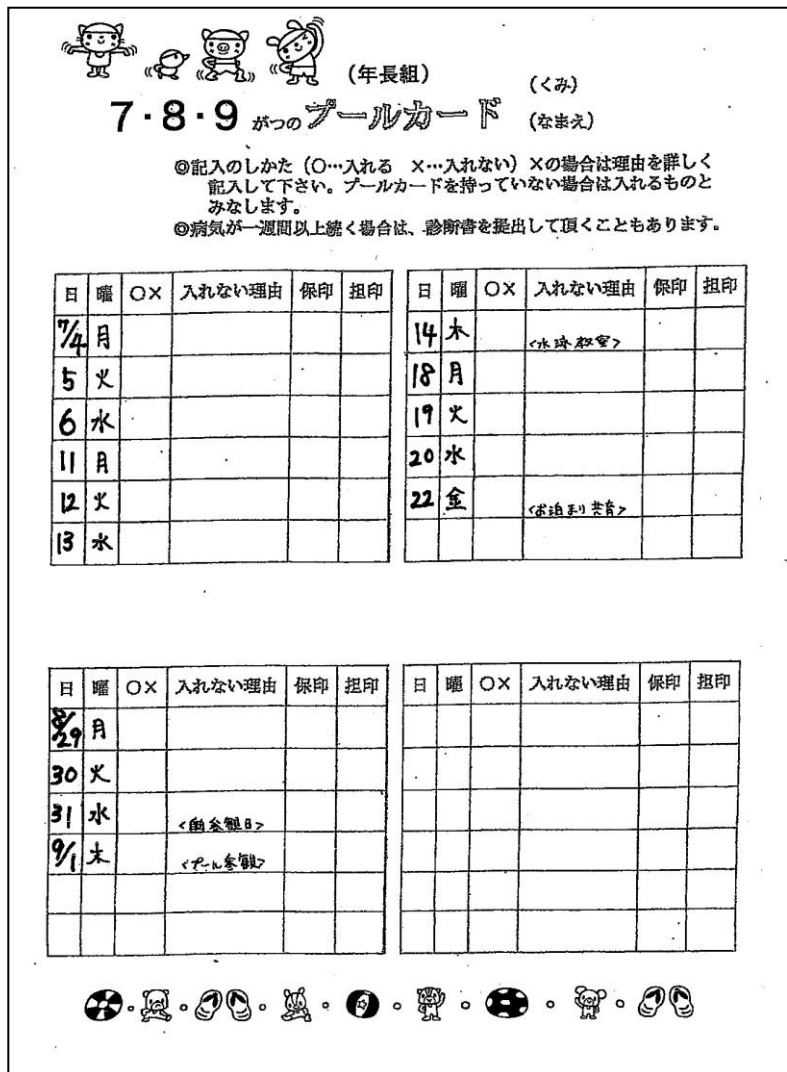 (年長組)
(くみ)
7・8・9 がつの プールカード
(なまえ)
◎記入のしかた(○…入れる ×…入れない)×の場合は理由を詳しく
記入して下さい。プールカードを持っていない場合は入れるものと
みなします。
◎病気が一週間以上続く場合は、診断書を提出して頂くこともあります。
日 曜 ○× 入れない理由 保印 担印
7/4 月
5 火
6 水
11 月
12 火
13 水
日 曜 ○× 入れない理由 保印 担印
14 木 <水泳教室>
18 月
19 火
20 水
22 金 <お泊まり共育>
日 曜 ○× 入れない理由 保印 担印
8/29 月
30 火
31 水 参観日>
9/1 木 <プール参観>
日 曜 ○× 入れない理由 保印 担印